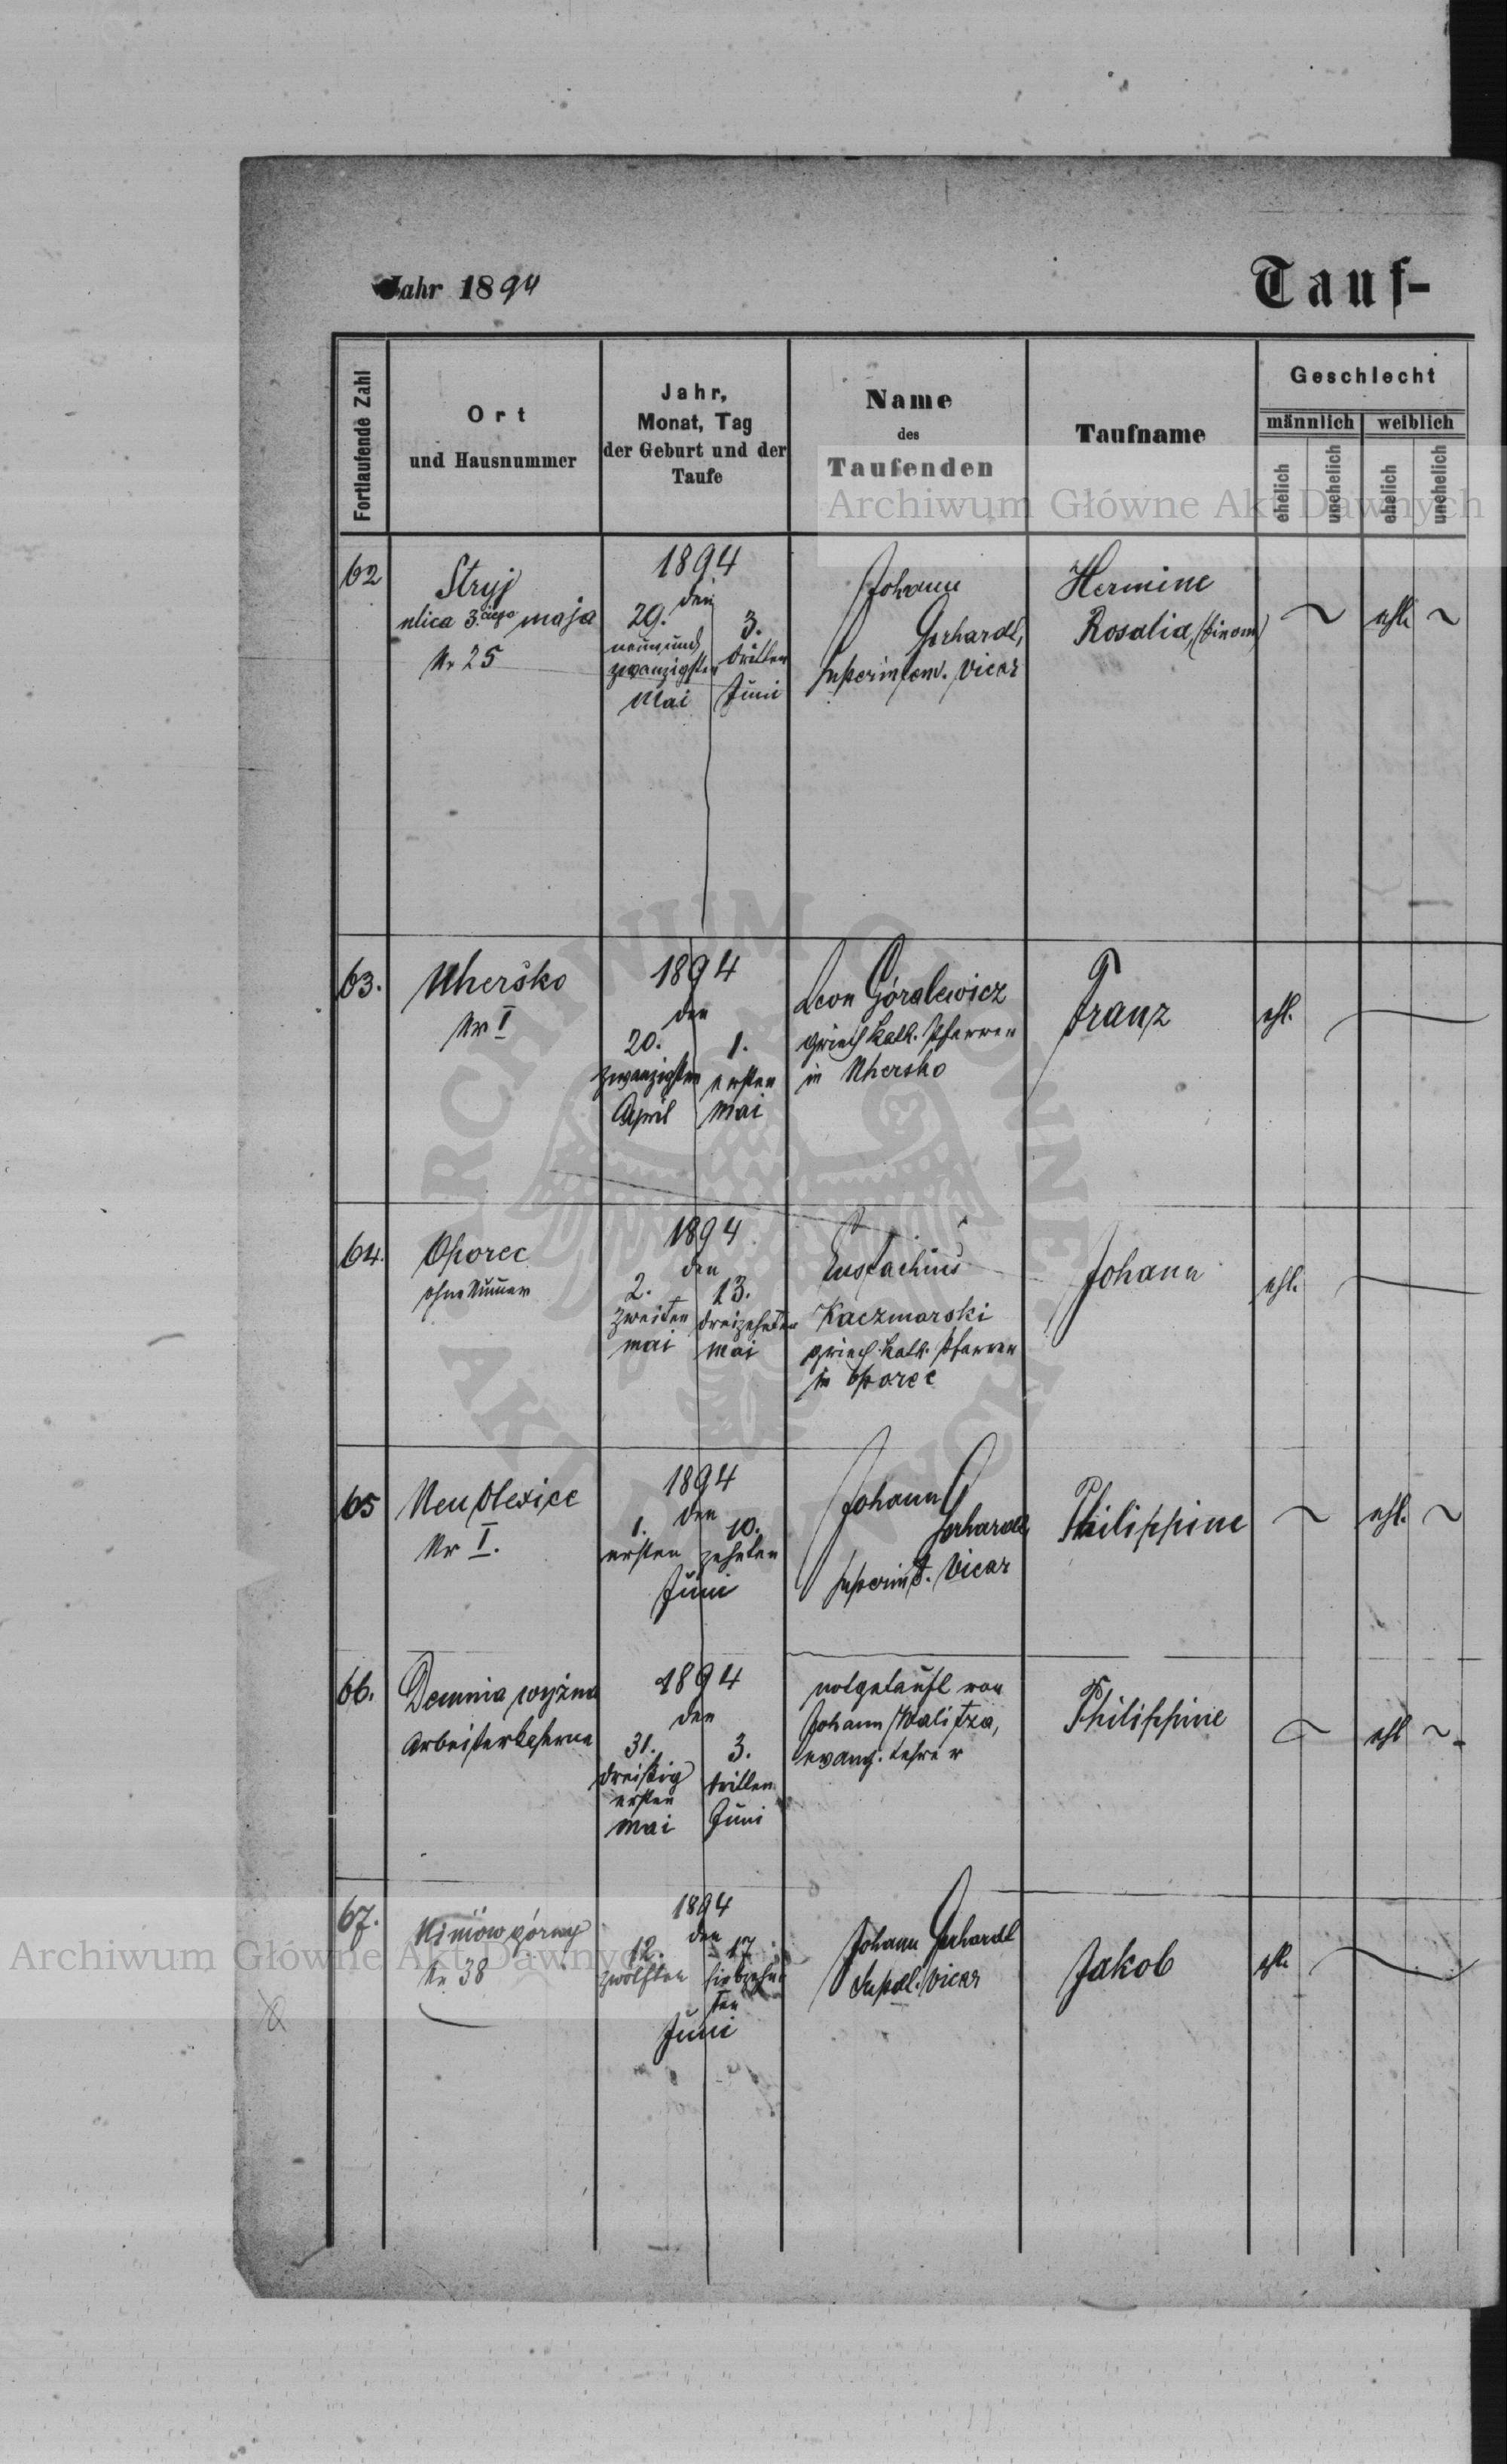 Jahr 1894
Tauf-
Fortlaufende Zahl
Ort
und Hausnummer
Jahr,
Monat, Tag
der Geburt und der
Taufe
Name
des
Taufenden
Taufname
Geschlecht
männlich
weiblich
ehelich
unehelich
ehelich
unehelich
Archiwum Główne Akt Dawnych
62
Stryj
ulica 3.ciego maja
Nr 25
1894
den
29.
neunund
zwanzigsten
Mai
3.
dritten
Juni
Johann
Gerhardt,
Superintend. Vicar
Hermine
Rosalia,
ehl.
63.
Uhersko
Nr I
1894
den
20.
zwanzigsten
April
1.
ersten
Mai
Leon Góralewicz
griech. kath. Pfarrer
in Uhersko
Franz
ehl.
64.
Oporec
ohne Nummer
1894
den
2.
zweiten
Mai
13.
dreizehnten
Mai
Eustachius
Kaczmarski
griech. kath. Pfarrer
in Oporec
Johann
ehl.
65
Neu Olexice
Nr I.
1894
den
1.
ersten
10.
zehnten
Juni
Johann
Gerhardt
Superint. Vicar
Philippine
ehl.
66.
Demnia wyżna
Arbeiterkaserne
1894
den
31.
dreißig
ersten
Mai
3.
dritten
Juni
notgetauft von
Johann Walitza,
evang. Lehrer
Philippine
ehl
67.
górny
Nr 38
1894
den
12.
zwölften
17
siebzehn
ten
Juni
Johann Gerhardt
Vicar
Jakob
ehl.
Archiwum Główne Akt Dawnych
ARCHIWUM GŁÓWNE AKT DAWNYCH